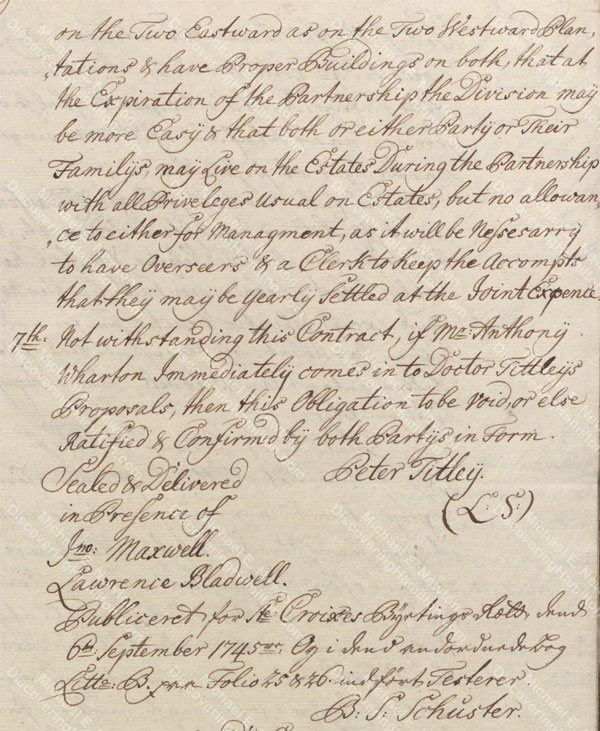 on the Two Eastward as on the Two Westward Plan,
„tations & have Proper Buildings on both, that at
the Expiration of the Partnership the Division may
be more Easy & that both or either Party or Their
Familys, may Live on the Estates During the Partnership
with all Priveleges Usual on Estates, but no allowan
„ce to either for Managment, as it will be Nessesarry
to have Overseers & a Clerk to Keep the Accompts
that they may be yearly Settled at the Joint Expence.
7th: Not withstanding this Contract, if Mr. Anthony
Wharton Immediately comes in to Doctor Tittleys
Proposals, then this Obligation to be void, or else
Ratified & Confirmd by both Partys in Form.
Sealed & Delivered Peter Titley.
in Presence of (L: S:)
Jno: Maxwell.
Lawrence Bladwell.
Publiceret for Ste Croixes Byetings Rætt, dend
6th September 1745 Og i dend
Litta: B. paa Folio 25 & 26 indført Testerer.
B: S: Schuster.